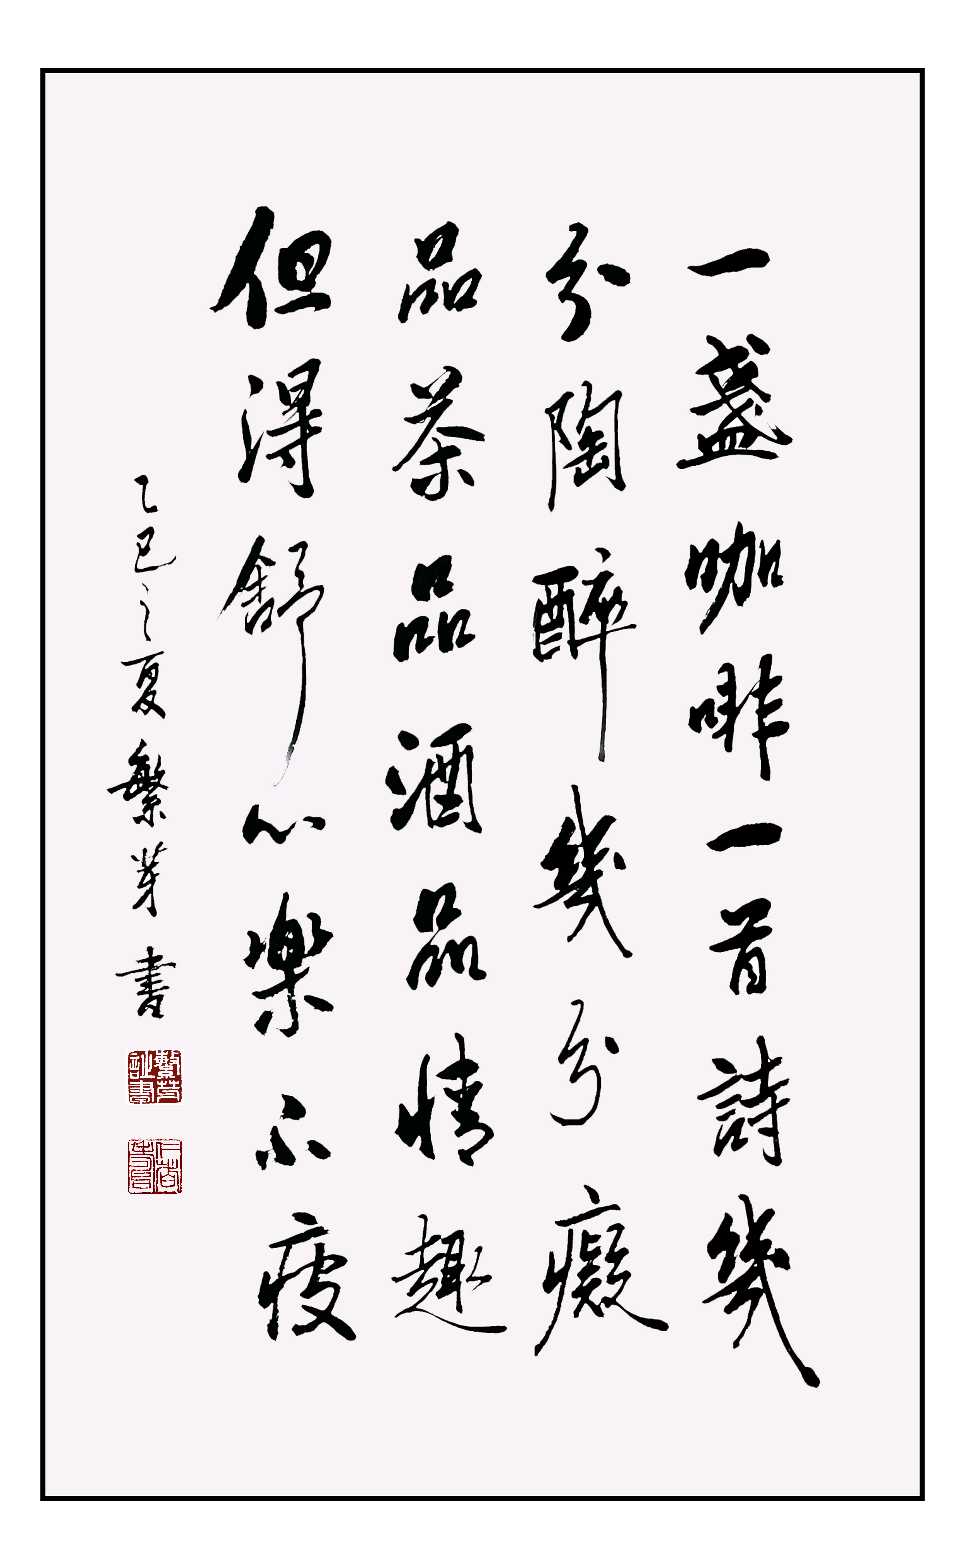 一盞咖啡一首詩幾
分陶醉幾分癡
品茶品酒品情趣
但得舒心樂不疲
乙巳之夏繁芽書